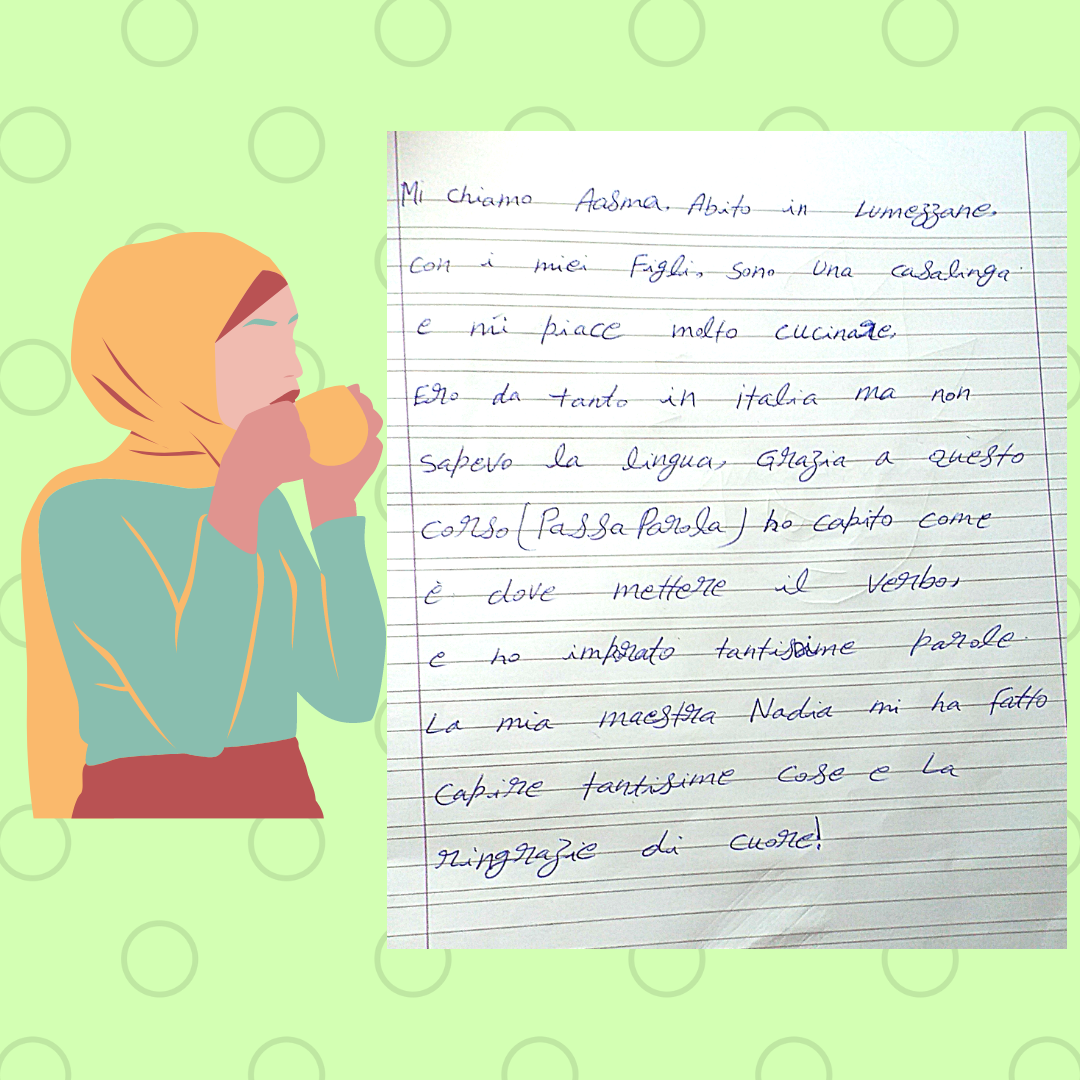 Mi chiamo Aasma. Abito in Lumezzane,
con i miei Figli, sono una casalinga.
e mi piace molto cucinare,
Ero da tanto in italia ma non
sapevo la lingua, Grazia a questo
corso (PassaParola) ho capito come
è dove mettere il verbo,
e ho imprato tantissime parole.
La mia maestra Nadia mi ha fatto
capire tantisime cose e La
ringrazie di cuore!